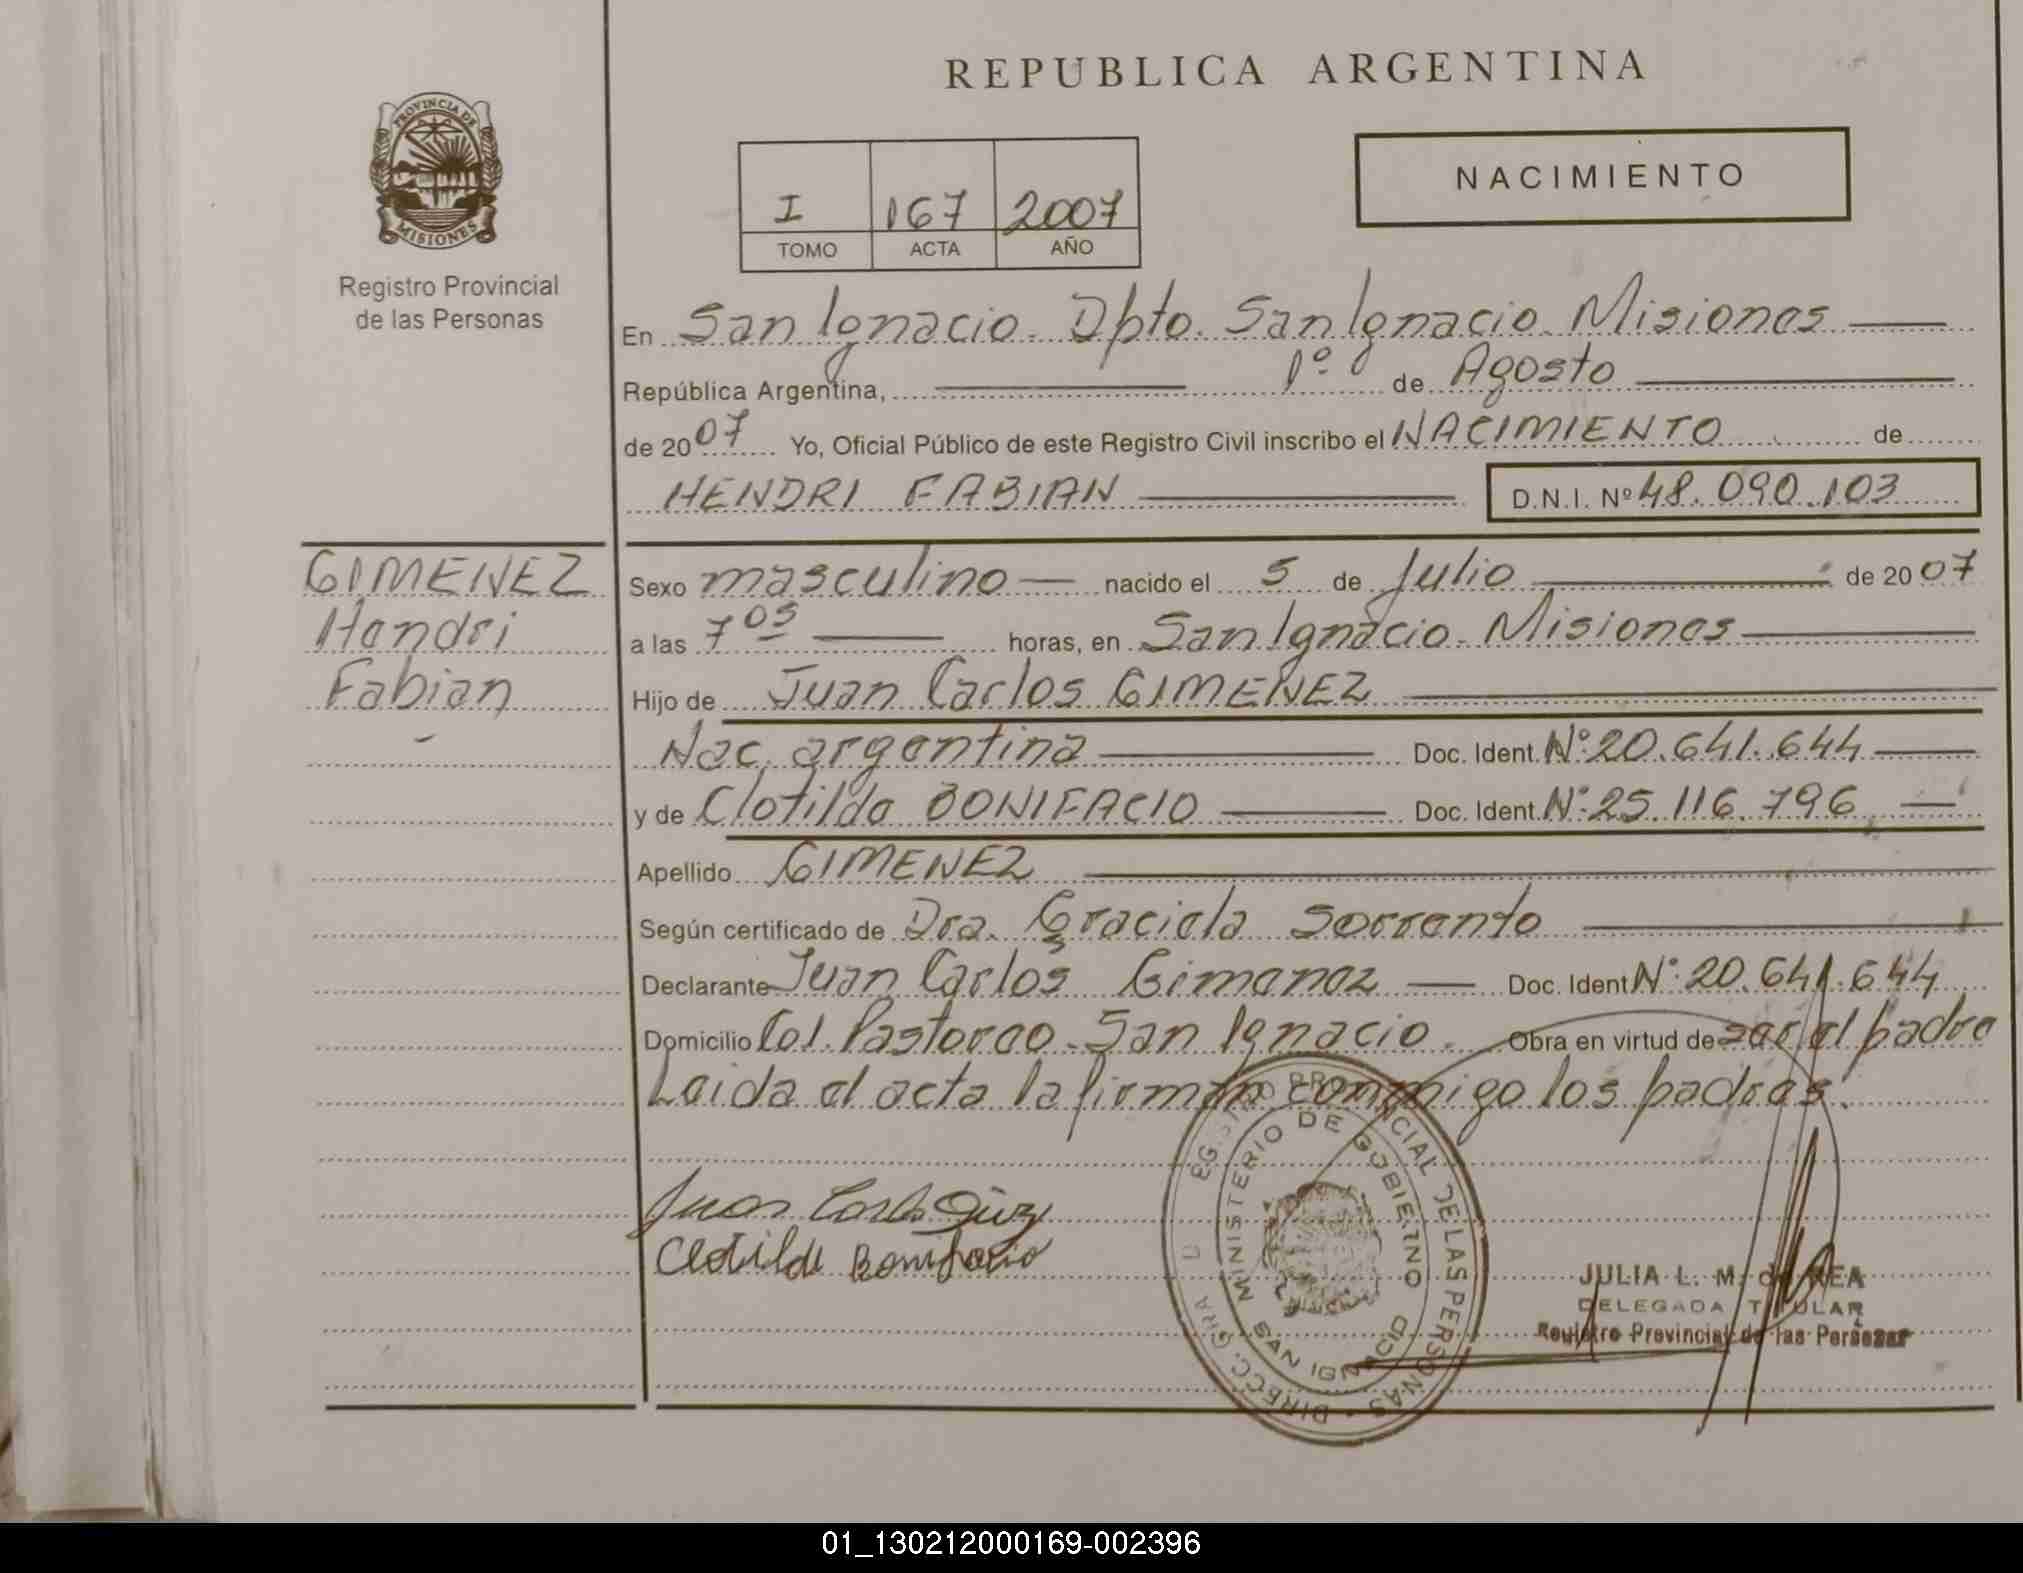 REPUBLICA ARGENTINA
PROVINCIA DE
MISIONES
Registro Provincial
de las Personas
I 167 2007
TOMO ACTA AÑO
NACIMIENTO
En San Ignacio. Dpto. San Ignacio. Misiones
República Argentina, 1º de Agosto
de 2007 Yo, Oficial Público de este Registro Civil inscribo el NACIMIENTO de
HENDRI FABIAN D.N.I. Nº 48.090.103
GIMENEZ
Hendri
Fabian
Sexo masculino nacido el 5 de Julio de 2007
a las 7 05 horas, en San Ignacio. Misiones
Hijo de Juan Carlos GIMENEZ
Nac. argentina Doc. Ident. Nº 20.641.644
y de Clotilda BONIFACIO Doc. Ident. Nº 25.116.796
Apellido GIMENEZ
Según certificado de Dra. Graciela Sorrento
Declarante Juan Carlos Gimenez Doc. Ident Nº 20.641.644
Domicilio Col. Pastoreo - San Ignacio. Obra en virtud de ser el padre
Leida el acta la firman conmigo los padres.
Juan Carlos
Clotilde Bonifacio
MINISTERIO DE GOBIERNO
SAN IGNACIO
PROVINCIAL DE LAS PERSONAS - DIRECC. GRAL
JULIA L. M. de REA
DELEGADA TITULAR
Registro Provincial de las Personas
01_130212000169-002396